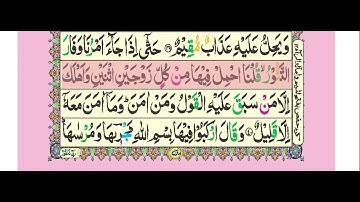 وَيَحِلُّ عَلَيْهِ عَذَابٌ مُّقِيْمٌ ﴿۳۹﴾ حَتّٰۤى اِذَا جَآءَ اَمْرُنَا وَفَارَ
التَّنُّوْرُ ۙ قُلْنَا احْمِلْ فِيْهَا مِنْ كُلٍّ زَوْجَيْنِ اثْنَيْنِ وَاَهْلَكَ
اِلَّا مَنْ سَبَقَ عَلَيْهِ الْقَوْلُ وَمَنْ اٰمَنَ ؕ وَمَاۤ اٰمَنَ مَعَهٗۤ
اِلَّا قَلِيْلٌ ﴿۴۰﴾ وَقَالَ ارْكَبُوْا فِيْهَا بِسْمِ اللّٰهِ مَجْرٖىهَا وَمُرْسٰىهَا ؕ